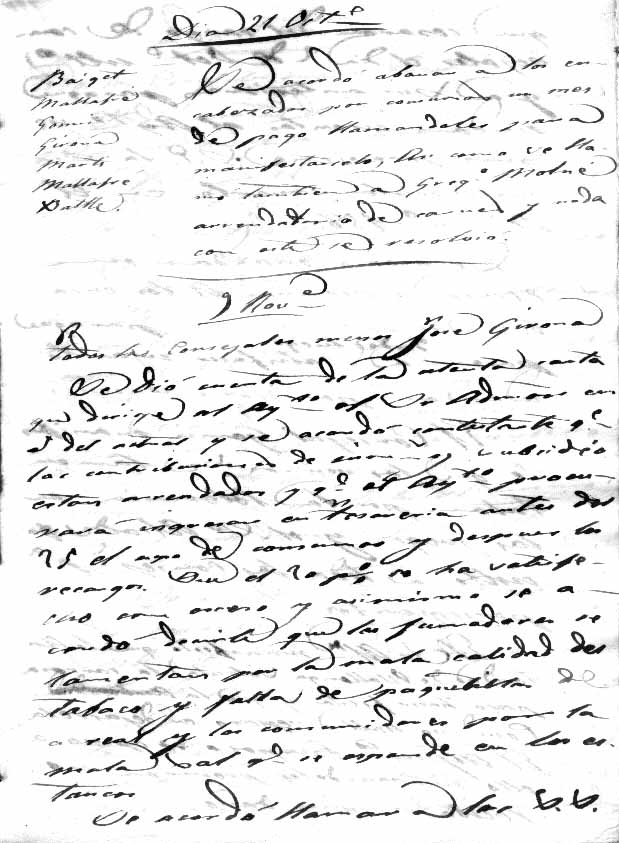 Dia 21 Oct.e
Baiget
Mallafré
Gomis
Girona
Marti
Mallafré
Batlle.
Se acordó abonar a los en-
cabezados por consumos un mes
de pago llamandoles para
manifestarselo, Asi como se lla-
mó tambien a Greg.o Molné
arrendatario de carnes y nada
con este se resolvió.
9 Nov.e
Todos los Consejales menos José Girona
Se dió cuenta de la atenta carta
que dirige al Ay.to el Sr Admor en
5 del actual y se acordó contestarle q.e
las contribuciones de inm.s y subsidio
estan arrendadas y q.e el Ay.to procu-
rará ingresar en Tesoreria antes del
25 el cupo de consumos y despues los
recargos. Que el 20 p% se ha satisfe-
cho con esceso y asimismo se a-
cordó decirle que los fumadores se
lamentan por la mala calidad del
tabaco y falta de paquetillas de
a real y los consumidores por la
mala sal q.e se espende en los es-
tancos
Se acordó llamar a los S.S.